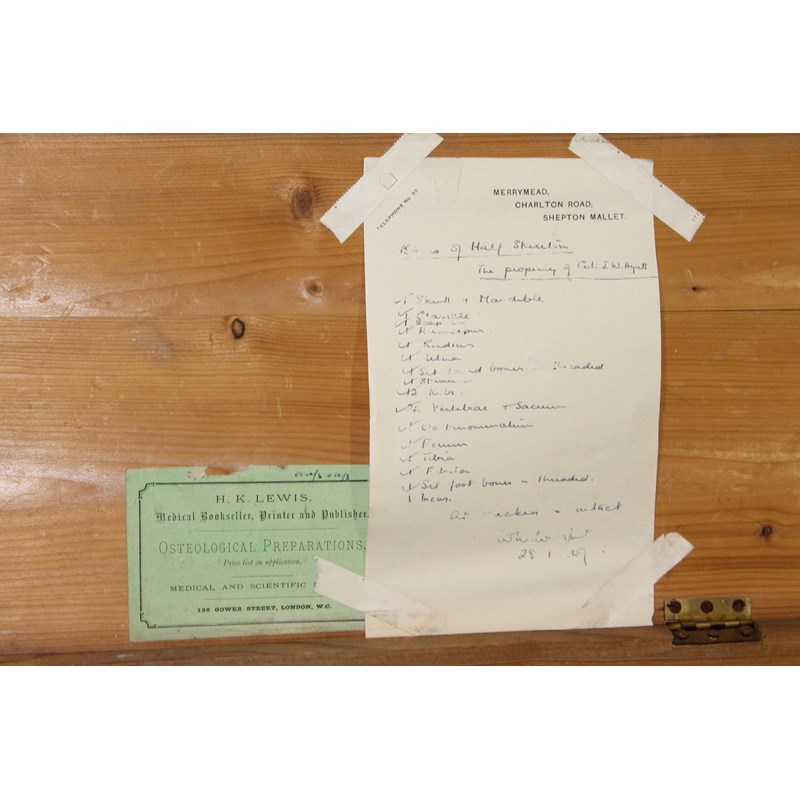 TELEPHONE No. 93
MERRYMEAD,
CHARLTON ROAD,
SHEPTON MALLET.
of Half Skeleton
The property of J. W. Hyatt
1 Skull + Mandible
1 Clavicle
1 Scap
1 Humerus
1 Radius
1 Ulna
1 Set bones - threaded
12
Vertebrae + Sacrum
1 Os Innominatum
1 Femur
1 Tibia
1 Fibula
1 Set foot bones - threaded.
1
+ intact
28 1 39.
H. K. LEWIS,
Medical Bookseller, Printer and Publisher,
OSTEOLOGICAL PREPARATIONS,
Price list on application.
MEDICAL AND SCIENTIFIC
136 GOWER STREET, LONDON, W.C.